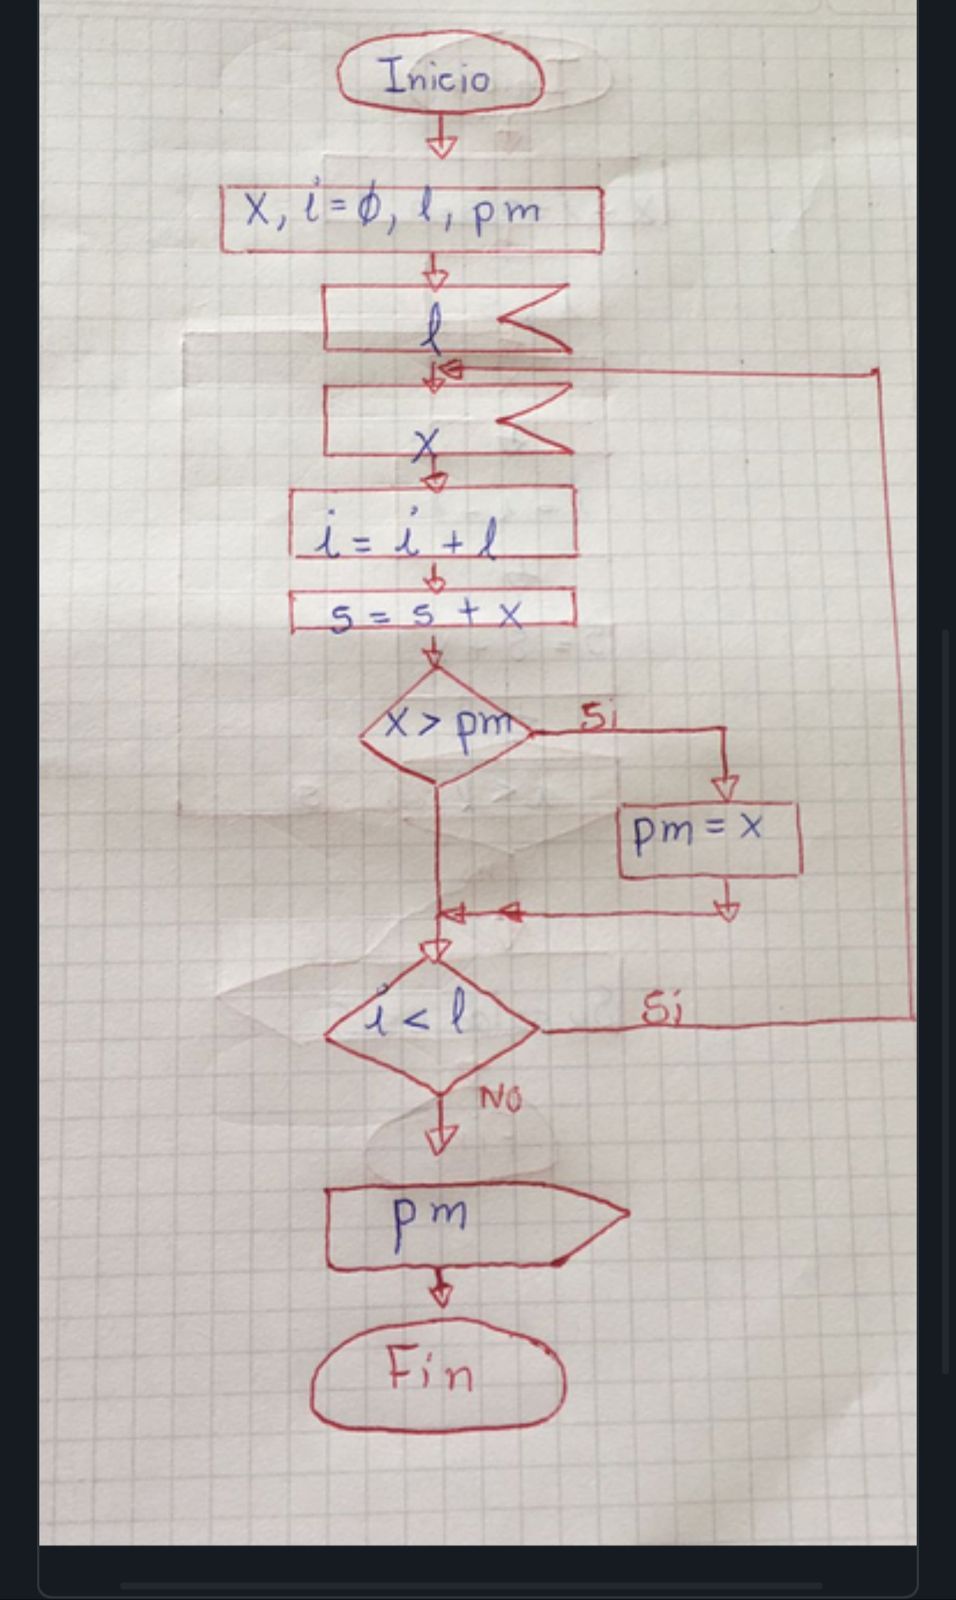 Inicio
x, i=ø, l, pm
l
x
i = i + l
s = s + x
x > pm
Si
pm = x
i < l
Si
NO
pm
Fin